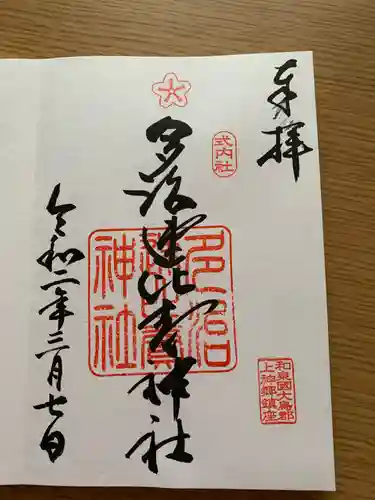 奉拝
式内社
多治速比売神社
多治速比賣神社
和泉國大鳥郡
上神郷鎮座
令和二年三月七日